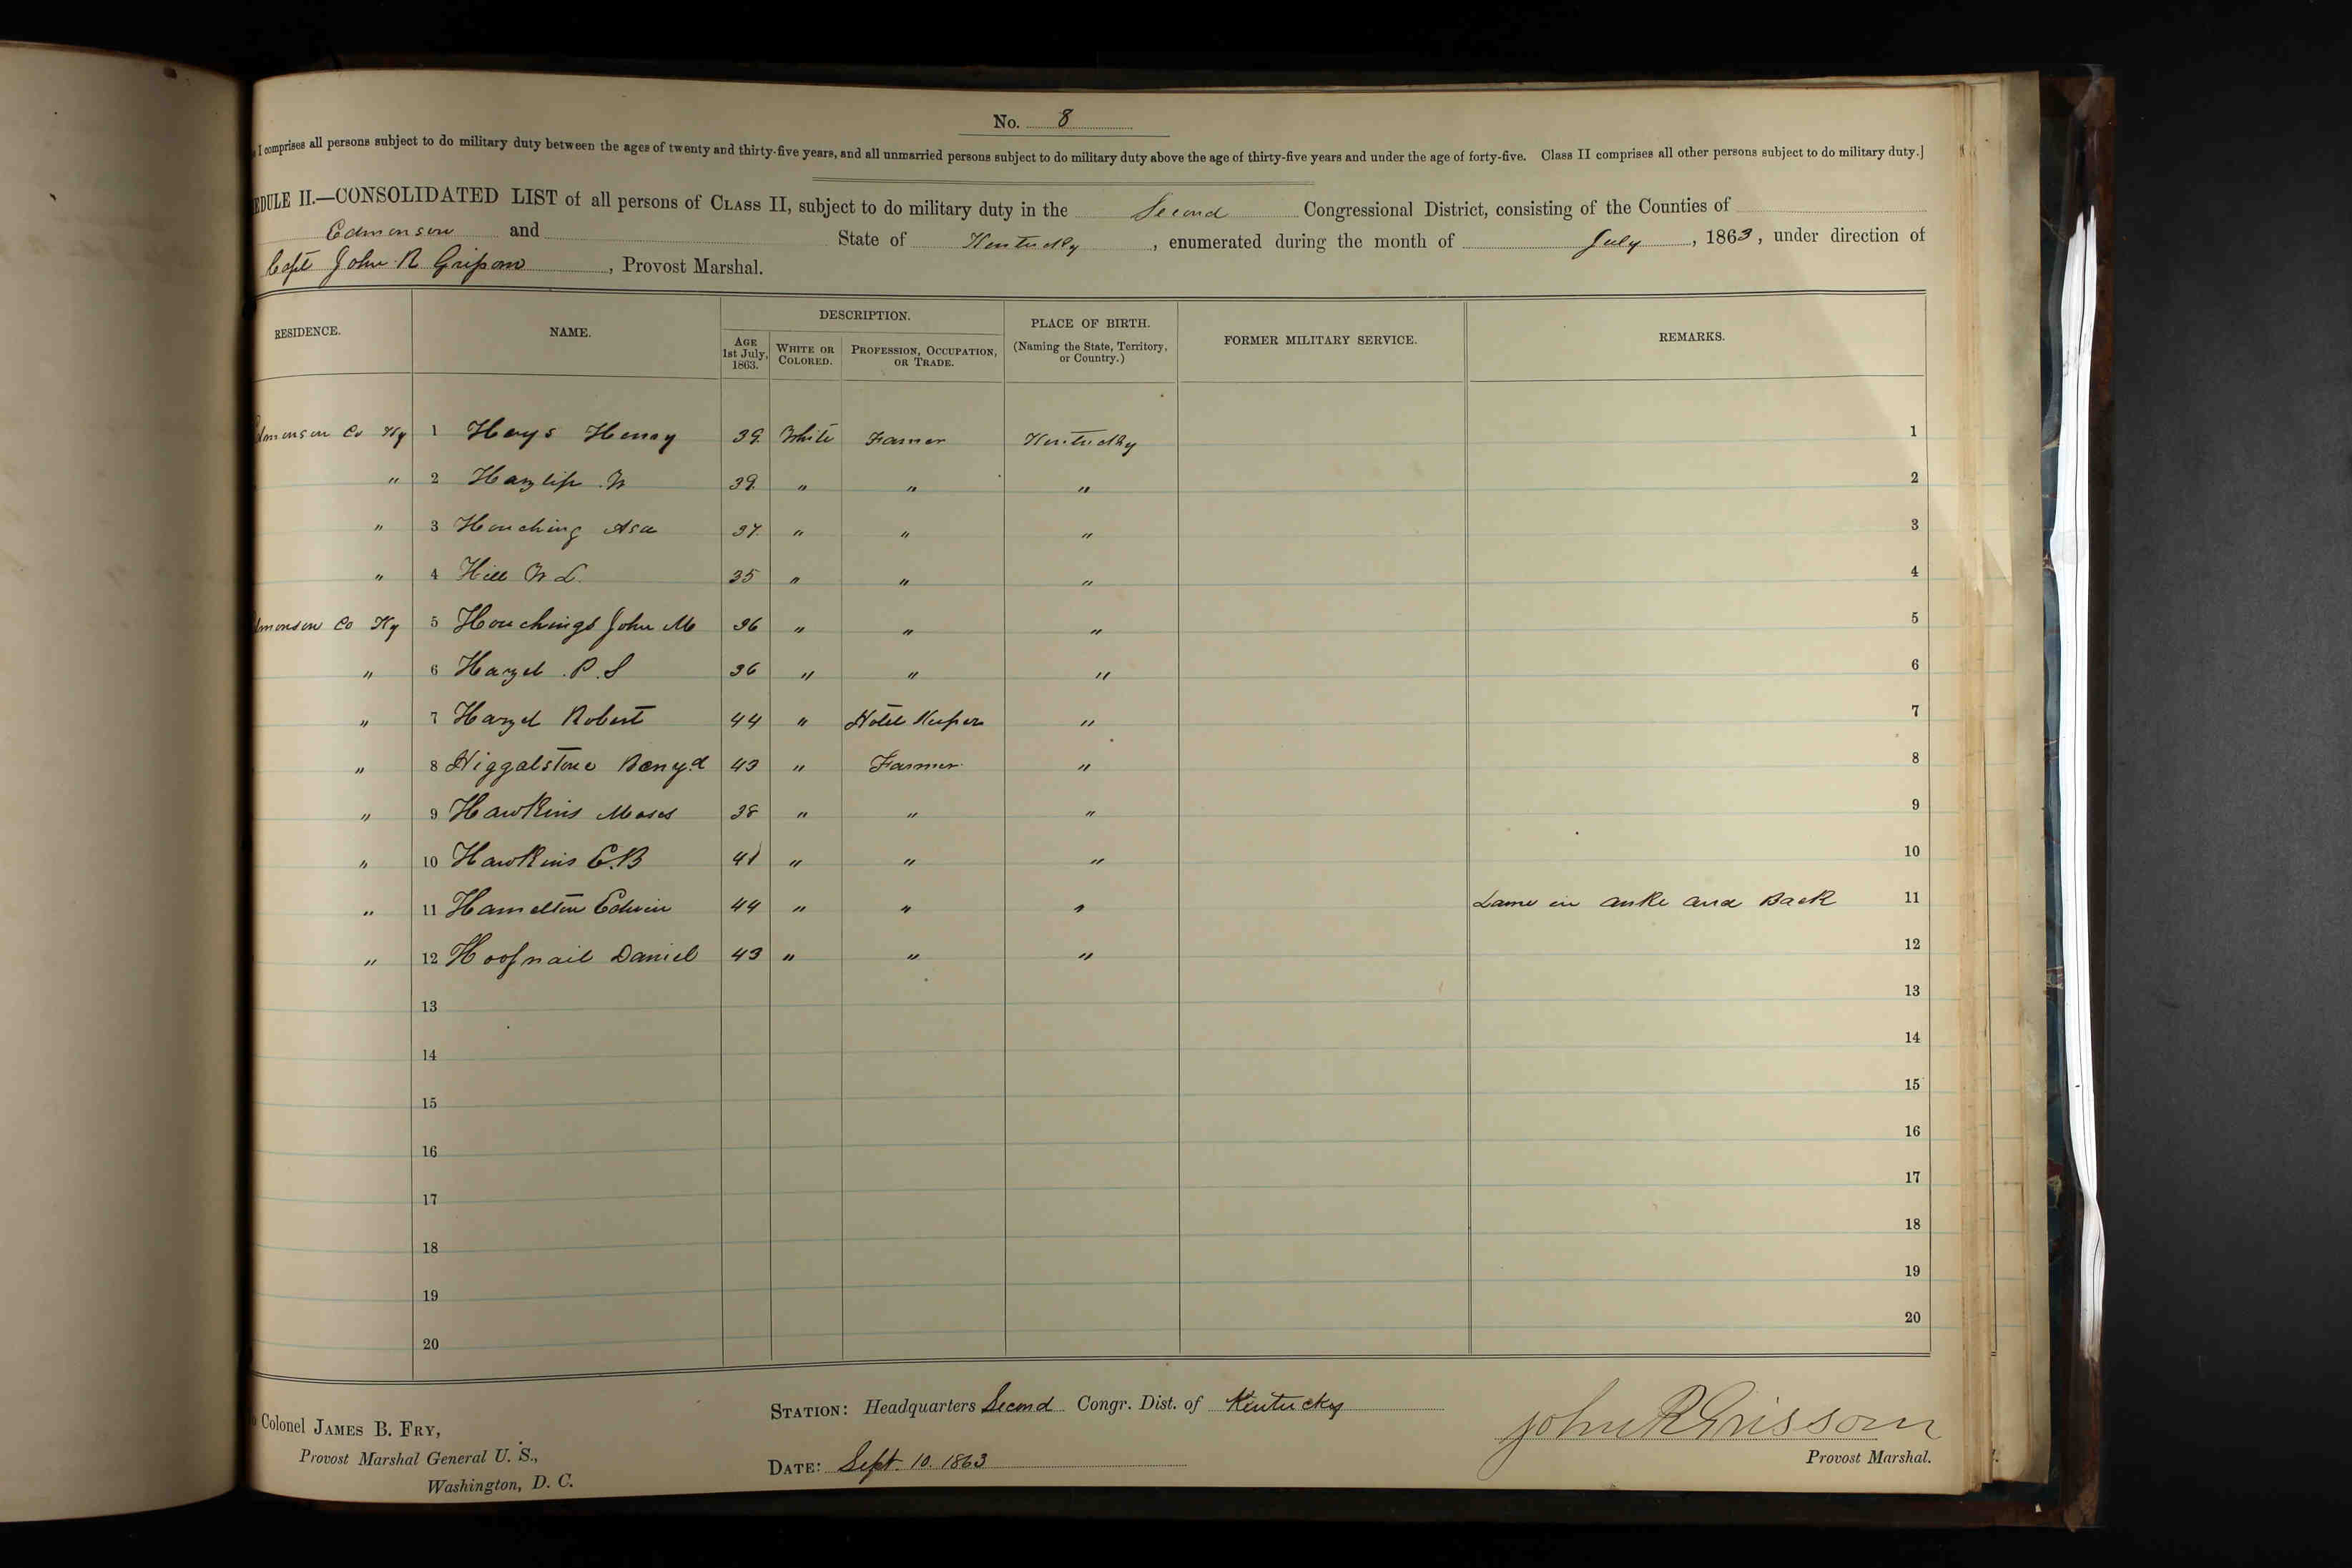 No. 8
I comprises all persons subject to do military duty between the ages of twenty and thirty-five years, and all unmarried persons subject to do military duty above the age of thirty-five years and under the age of forty-five. Class II comprises all other persons subject to do military duty.]
EDULE II.—CONSOLIDATED LIST of all persons of CLASS II, subject to do military duty in the Second Congressional District, consisting of the Counties of
Edmonson and State of Kentucky, enumerated during the month of July, 1863, under direction of
Capt John R Grissom, Provost Marshal.
RESIDENCE. NAME. DESCRIPTION. PLACE OF BIRTH. (Naming the State, Territory, or Country.) FORMER MILITARY SERVICE. REMARKS.
AGE 1st July, 1863. WHITE OR COLORED. PROFESSION, OCCUPATION, OR TRADE.
Edmonson Co Ky 1 Hays Henry 39 White Farmer Kentucky 1
" 2 Hazlip W 39 " " " 2
" 3 Houching Asa 37 " " " 3
" 4 Hill W L. 35 " " " 4
Edmonson Co Ky 5 Houchings John M 36 " " " 5
" 6 Hazel P. S 36 " " " 6
" 7 Hazel Robert 44 " Hotel Keeper " 7
" 8 Higgalstone 43 " Farmer " 8
" 9 Hawkins Moses 38 " " " 9
" 10 Hawkins E.B 41 " " " 10
" 11 Hamelton Edwin 44 " " " Lame in anke and Back 11
" 12 Hoofnail Daniel 43 " " " 12
13 13
14 14
15 15
16 16
17 17
18 18
19 19
20 20
Colonel JAMES B. FRY,
Provost Marshal General U. S.,
Washington, D. C.
STATION: Headquarters Second Congr. Dist. of Kentucky
DATE: Sept. 10. 1863
John R Grissom
Provost Marshal.